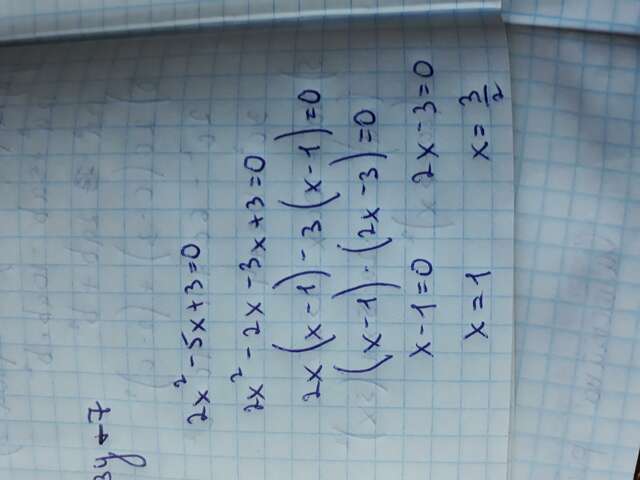 3y+7
2x² - 5x + 3 = 0
2x² - 2x - 3x + 3 = 0
2x(x - 1) - 3(x - 1) = 0
(x - 1) · (2x - 3) = 0
x - 1 = 0 2x - 3 = 0
x = 1 x = 3/2